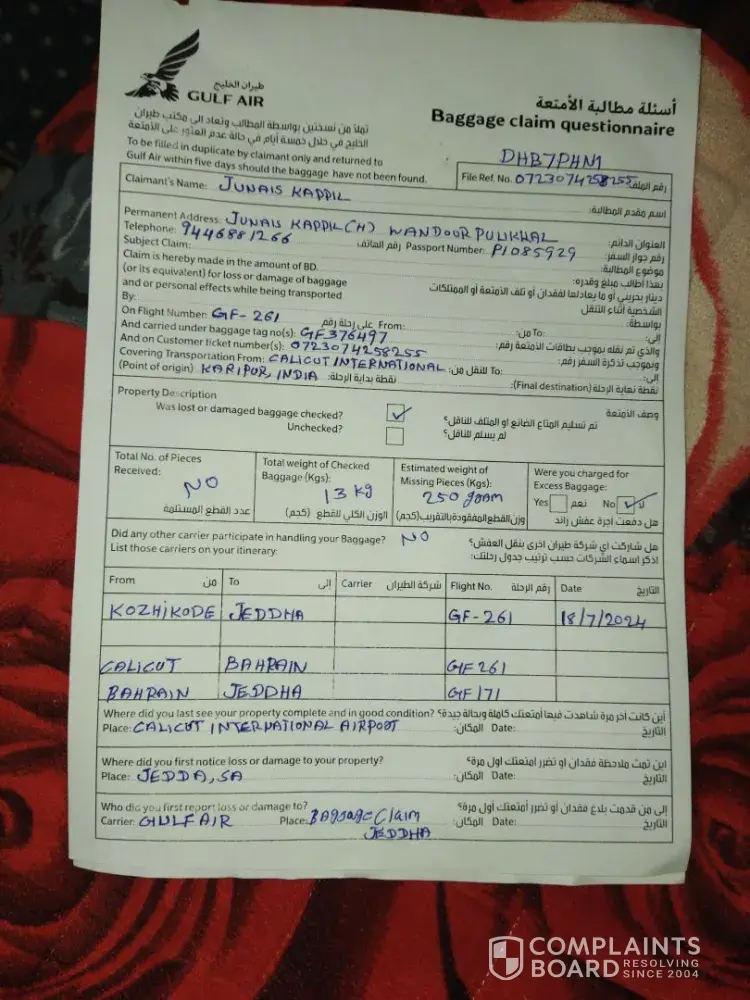 طيران الخليج
GULF AIR
أسئلة مطالبة الأمتعة
Baggage claim questionnaire
تملأ من نسختين بواسطة المطالب وتعاد الى مكتب طيران
الخليج في خلال خمسة أيام في حالة عدم العثور على الأمتعة
To be filled in duplicate by claimant only and returned to
Gulf Air within five days should the baggage have not been found.
DHB7PHN1
File Ref. No. 0723074258255 رقم الملف
Claimant's Name: JUNAIS KAPPIL اسم مقدم المطالبة:
Permanent Address: JUNAIS KAPPIL(H) WANDOOR PULIKHAL العنوان الدائم:
Telephone: 9446881266 رقم الهاتف Passport Number: P1085929 رقم جواز السفر:
Subject Claim: موضوع المطالبة:
Claim is hereby made in the amount of BD. بهذا أطالب مبلغ وقدره:
(or its equivalent) for loss or damage of baggage دينار بحريني أو ما يعادلها لفقدان أو تلف الأمتعة أو الممتلكات
and or personal effects while being transported الشخصية أثناء التنقل
By: بواسطة:
On Flight Number: GF-261 على رحلة رقم From: من: To: إلى:
And carried under baggage tag no(s): GF376497 والذي تم نقله بموجب بطاقات الأمتعة رقم:
And on Customer ticket number(s): 0723074258255 وبموجب تذكرة السفر رقم:
Covering Transportation From: CALICUT INTERNATIONAL للنقل من: To: إلى:
(Point of origin) KARIPUR, INDIA نقطة بداية الرحلة: (Final destination) نقطة نهاية الرحلة:
Property Description وصف الأمتعة
Was lost or damaged baggage checked? ✓ تم تسليم المتاع الضائع او المتلف للناقل؟
Unchecked? لم يسلم للناقل؟
Total No. of Pieces Received: NO عدد القطع المستلمة
Total weight of Checked Baggage (Kgs): 13 kg الوزن الكلي للقطع (كجم)
Estimated weight of Missing Pieces (Kgs): 250 gram وزن القطع المفقودة بالتقريب (كجم)
Were you charged for Excess Baggage: Yes نعم No لا ✓ هل دفعت أجرة عفش زائد
Did any other carrier participate in handling your Baggage? NO هل شاركت اي شركة طيران اخرى بنقل العفش؟
List those carriers on your itinerary: اذكر اسماء الشركات حسب ترتيب جدول رحلتك:
From من To إلى Carrier شركة الطيران Flight No. رقم الرحلة Date التاريخ
KOZHIKODE JEDDHA GF-261 18/7/2024
CALICUT BAHRAIN GF 261
BAHRAIN JEDDHA GF 171
Where did you last see your property complete and in good condition? أين كانت آخر مرة شاهدت فيها أمتعتك كاملة وبحالة جيدة؟
Place: CALICUT INTERNATIONAL AIRPORT المكان: Date: التاريخ
Where did you first notice loss or damage to your property? اين تمت ملاحظة فقدان أو تضرر امتعتك اول مرة؟
Place: JEDDA, SA المكان: Date: التاريخ
Who did you first report loss or damage to? إلى من قدمت بلاغ فقدان أو تضرر أمتعتك أول مرة؟
Carrier: GULF AIR Place: Baggage Claim المكان: Date: التاريخ
JEDDHA
COMPLAINTS
BOARD RESOLVING
SINCE 2004